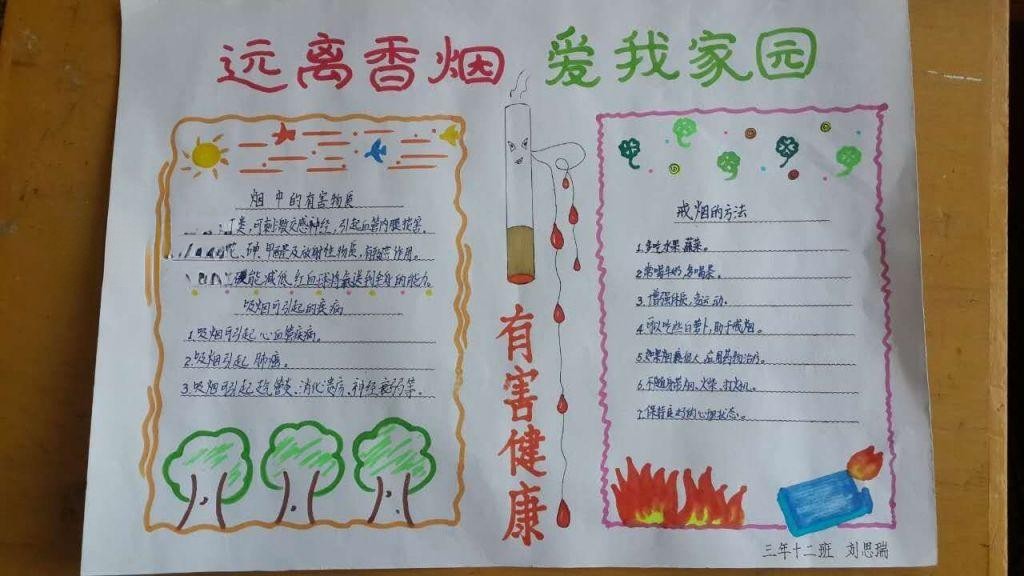 远离香烟 爱我家园
烟中的有害物质
类,可刺激交感神经,引起血管内膜损害。
砷、甲醛及放射性物质,有致癌作用。
减低红血球将氧送到全身的能力。
吸烟可引起的疾病
1.吸烟可引起心血管疾病。
2.吸烟引起肺癌。
3.吸烟可引起支气管炎、消化道病、神经衰弱等。
有害健康
戒烟的方法
1.多吃水果、蔬菜。
2.常喝牛奶、多喝茶。
3.增强体质,多运动。
4.可以吃些白萝卜,助于戒烟。
5.如果烟瘾很大,应用药物治疗。
6.不随身带烟、火柴、打火机。
7.保持良好的心理状态。
三年十二班 刘思瑞